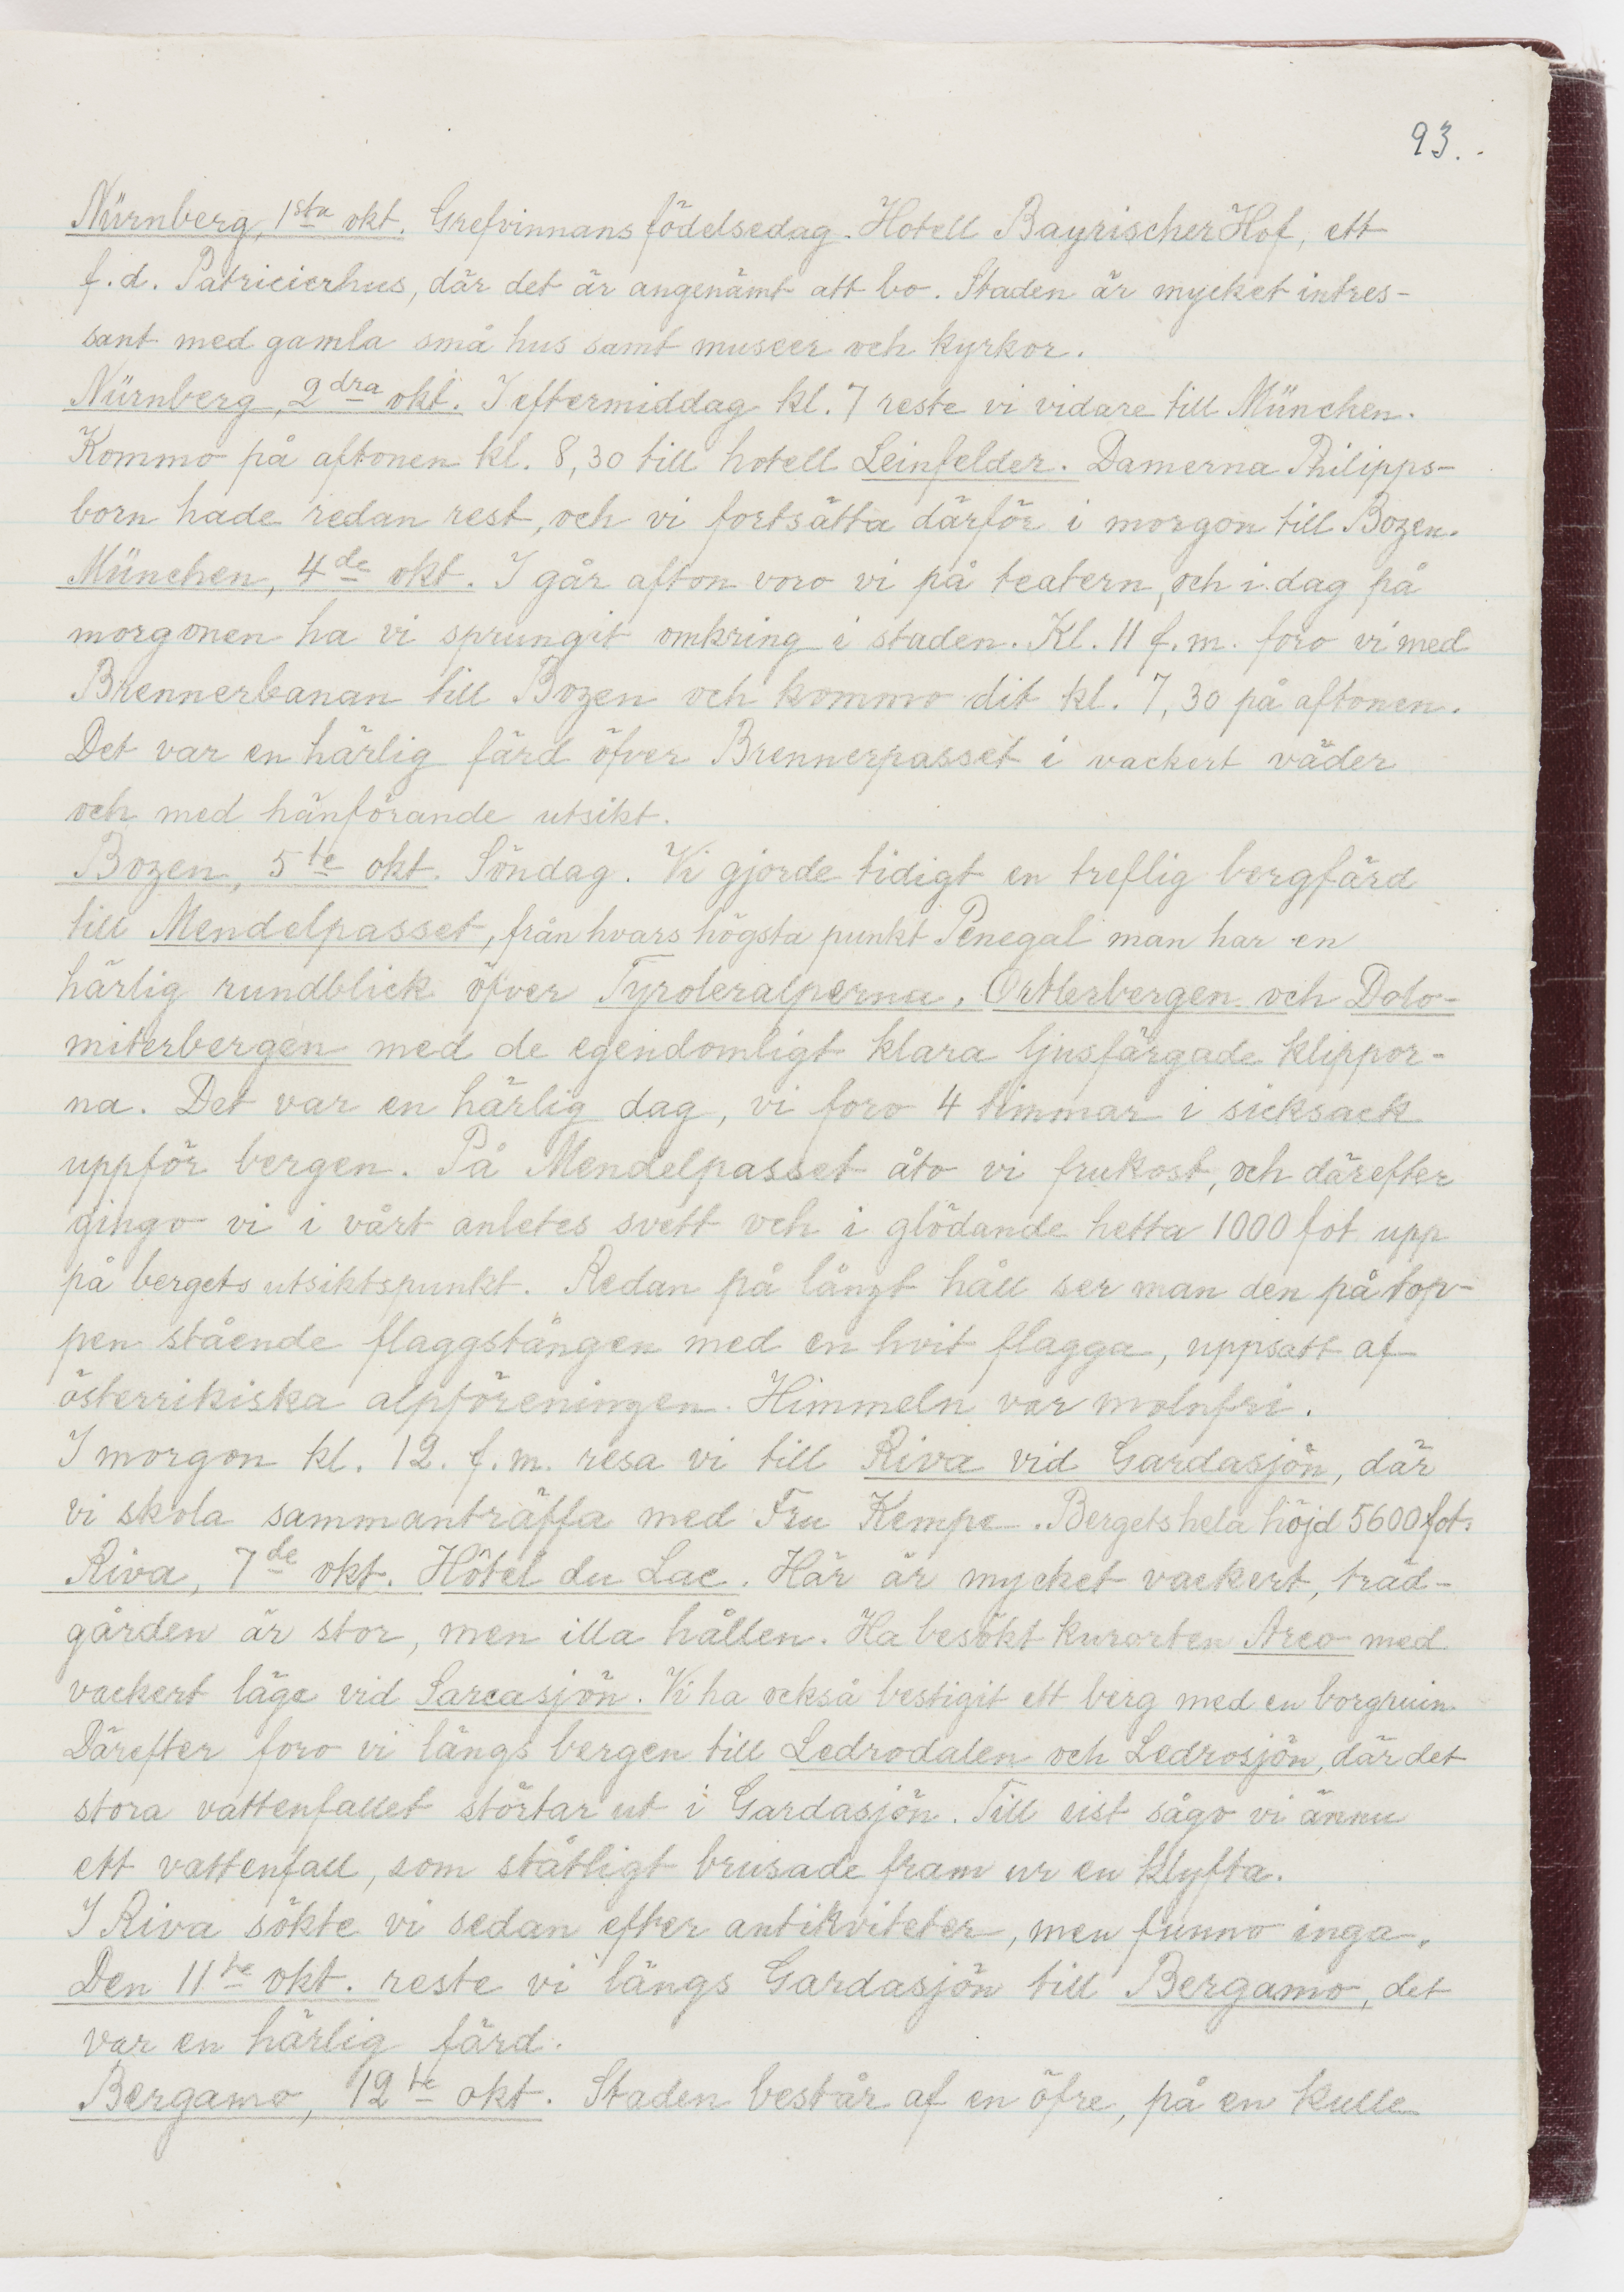 93.
Nürnberg, 1sta okt. Grefvinnans födelsedag. Hotell Bayrischer Hof, ett
f.d. Patricierhus, där det är angenämt att bo. Staden är mycket intres-
sant med gamla små hus samt museer och kyrkor.
Nürnberg, 2dra okt. I eftermiddag kl. 7 reste vi vidare till München.
Kommo på aftonen kl. 8,30 till hotell Leinfelder. Damerna Philipps-
born hade redan rest, och vi fortsätta därför i morgon till Bozen.
München, 4de okt. I går afton voro vi på teatern, och i dag på
morgonen ha vi sprungit omkring i staden. Kl. 11 f.m. foro vi med
Brennerbanan till Bozen och kommo dit kl. 7,30 på aftonen.
Det var en härlig färd öfver Brennerpasset i vackert väder
och med hänförande utsikt.
Bozen, 5te okt. Söndag. Vi gjorde tidigt en treflig bergfärd
till Mendelpasset, från hvars högsta punkt Penegal man har en
härlig rundblick öfver Tyroleralperna, Ortlerbergen och Dolo-
miterbergen med de egendomligt klara ljusfärgade klippor-
na. Det var en härlig dag, vi foro 4 timmar i sicksack
uppför bergen. På Mendelpasset åto vi frukost, och därefter
gingo vi i vårt anletes svett och i glödande hetta 1000 fot upp
på bergets utsiktspunkt. Redan på långt håll ser man den på top-
pen stående flaggstången med en hvit flagga, uppsatt af
österrikiska alpföreningen. Himmeln var molnfri.
I morgon kl. 12. f.m. resa vi till Riva vid Gardasjön, där
vi skola sammanträffa med Fru Kempe. Bergets hela höjd 5600 fot.
Riva, 7de okt. Hôtel du Lac. Här är mycket vackert, träd-
gården är stor, men illa hållen. Ha besökt kurorten Arco med
vackert läge vid Sarcasjön. Vi ha också bestigit ett berg med en borgruin.
Därefter foro vi längs bergen till Ledrodalen och Ledrosjön, där det
stora vattenfallet störtar ut i Gardasjön. Till sist sågo vi ännu
ett vattenfall, som ståtligt brusade fram ur en klyfta.
I Riva sökte vi sedan efter antikviteter, men funno inga.
Den 11te okt. reste vi längs Gardasjön till Bergamo, det
var en härlig färd.
Bergamo, 12te okt. Staden består af en öfre, på en kulle